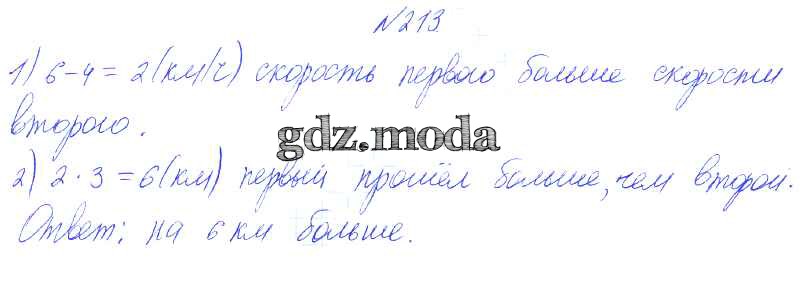 №213
1) 6-4=2(км/ч) скорость первого больше скорости
второго.
gdz.moda
2) 2·3=6(км) первый прошёл больше, чем второй.
Ответ: на 6 км больше.